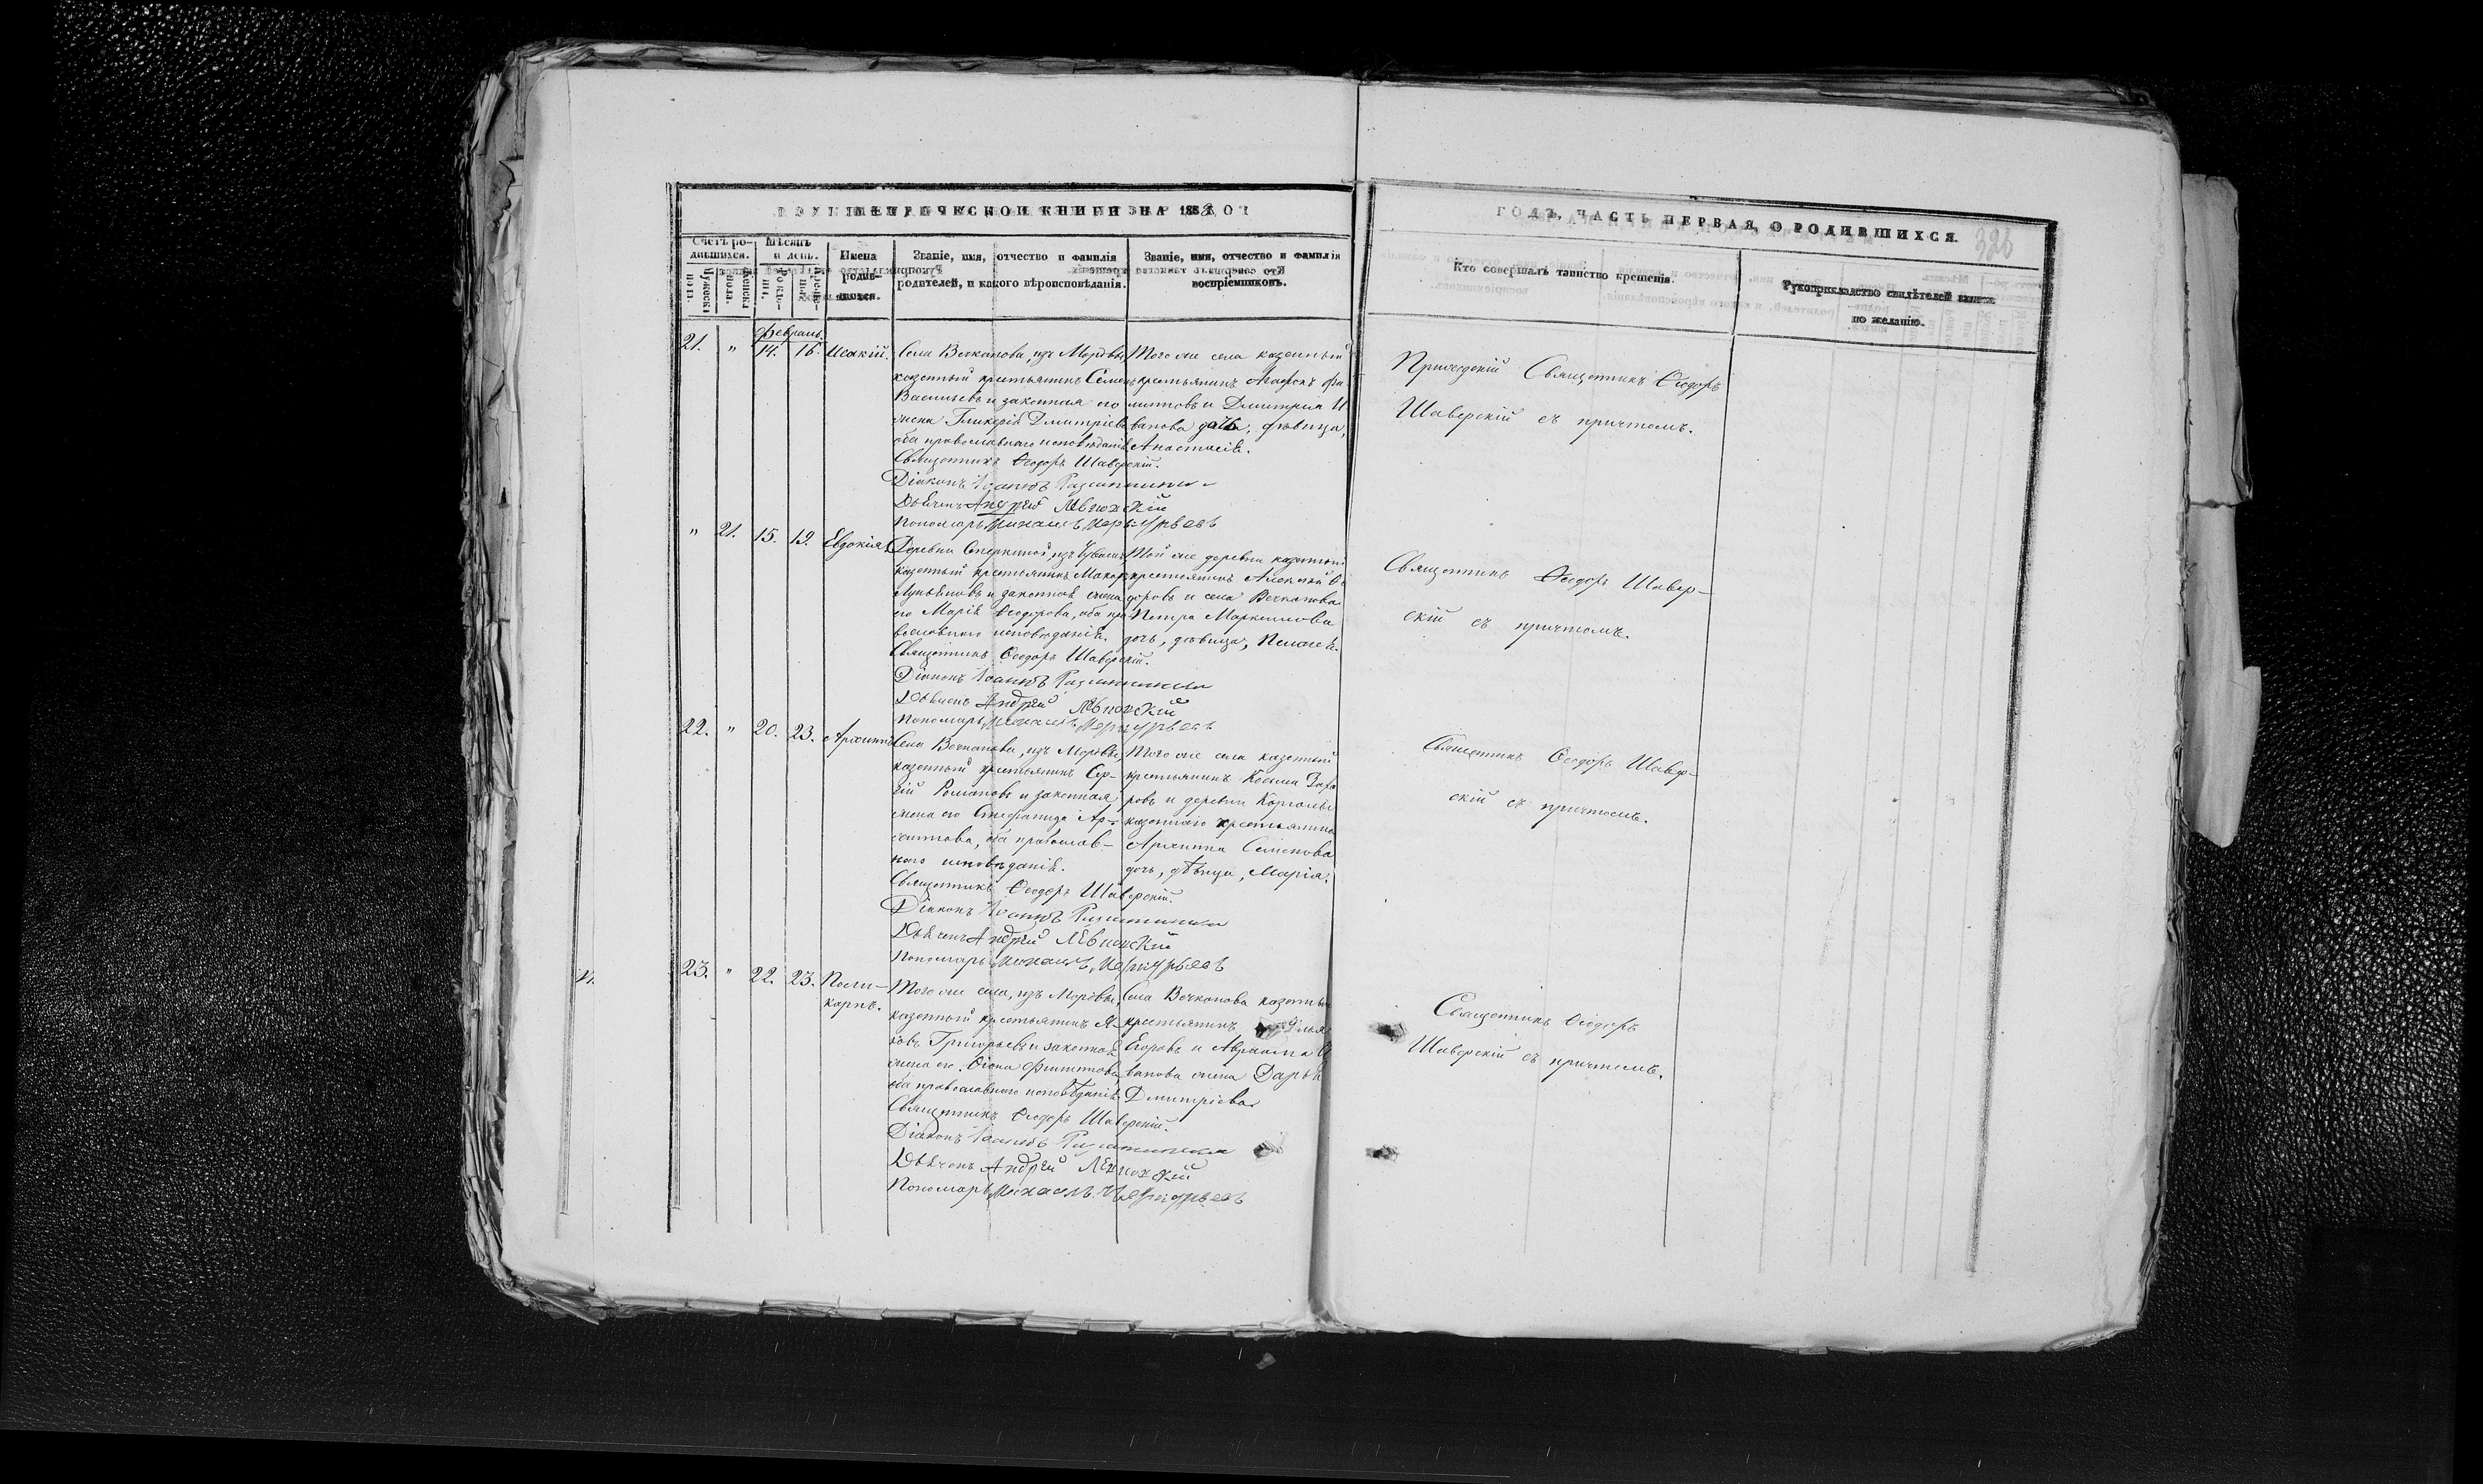 МЕТРИЧЕСКОЙ КНИГИ НА 1853
ГОДЪ, ЧАСТЬ ПЕРВАЯ, О РОДИВШИХСЯ.
326
Счетъ ро-
дившихся.
Мѣсяцъ
и день.
Имена
родив-
шихся.
Званіе, имя, отчество и фамилія
родителей, и какого вѣроисповѣданія.
Званіе, имя, отчество и фамилія
воспріемниковъ.
Кто совершалъ таинство крещенія.
Рукоприкладство свидѣтелей записи
по желанію.
Февраль
21. " 14. 16. Исакій.
Села Вечканова, изъ Мордвы
казенный крестьянинъ Семенъ
Васильевъ и законная его
жена Гликерія Дмитріева
оба православнаго исповѣданія.
Священникъ Ѳеодоръ Шаверскій.
Діаконъ Іоаннъ
Дьячекъ Андрей
Пономарь Михаилъ Меркурьевъ
Того же села казенный
крестьянинъ Агафонъ Фи-
липповъ и Дмитрія И
ванова дочь, дѣвица,
Анастасія.
Приходскій Священникъ Ѳеодоръ
Шаверскій съ причтомъ.
" 21. 15. 19. Евдокія.
Деревни изъ Чувашъ
казенный крестьянинъ Макаръ
и законная жена
его Марія Ѳеодорова, оба пра
вославнаго исповѣданія.
Священникъ Ѳеодоръ Шаверскій.
Діаконъ Іоаннъ
Дьячекъ Андрей
Пономарь Михаилъ Меркурьевъ
Той же деревни казенный
крестьянинъ Алексѣй Ѳе
доровъ и села Вечканова
Петра Маркелова
дочь, дѣвица, Пелагея.
Священникъ Ѳеодоръ Шавер-
скій съ причтомъ.
22. " 20. 23. Архиппъ
Села Вечканова, изъ Мордвы
казенный крестьянинъ Сер-
гій Романовъ и законная
жена его Стефанида Ар-
хиппова, оба православ-
наго исповѣданія.
Священникъ Ѳеодоръ Шаверскій.
Діаконъ Іоаннъ
Дьячекъ Андрей
Пономарь Михаилъ Меркурьевъ
Того же села казенный
крестьянинъ Косьма Заха
ровъ и деревни
казеннаго крестьянина
Архиппа Семенова
дочь, дѣвица, Марія.
Священникъ Ѳеодоръ Шавер-
скій съ причтомъ.
23. " 22. 23. Поли-
карпъ.
Того же села, изъ Мордвы,
казенный крестьянинъ Я-
ковъ Григорьевъ и законная
жена его Филиппова,
оба православнаго исповѣданія.
Священникъ Ѳеодоръ Шаверскій.
Діаконъ Іоаннъ
Дьячекъ Андрей
Пономарь Михаилъ Меркурьевъ
Села Вечканова казенный
крестьянинъ Илья
Егоровъ и Авраама И
ванова жена Дарья
Дмитріева
Священникъ Ѳеодоръ
Шаверскій съ причтомъ.